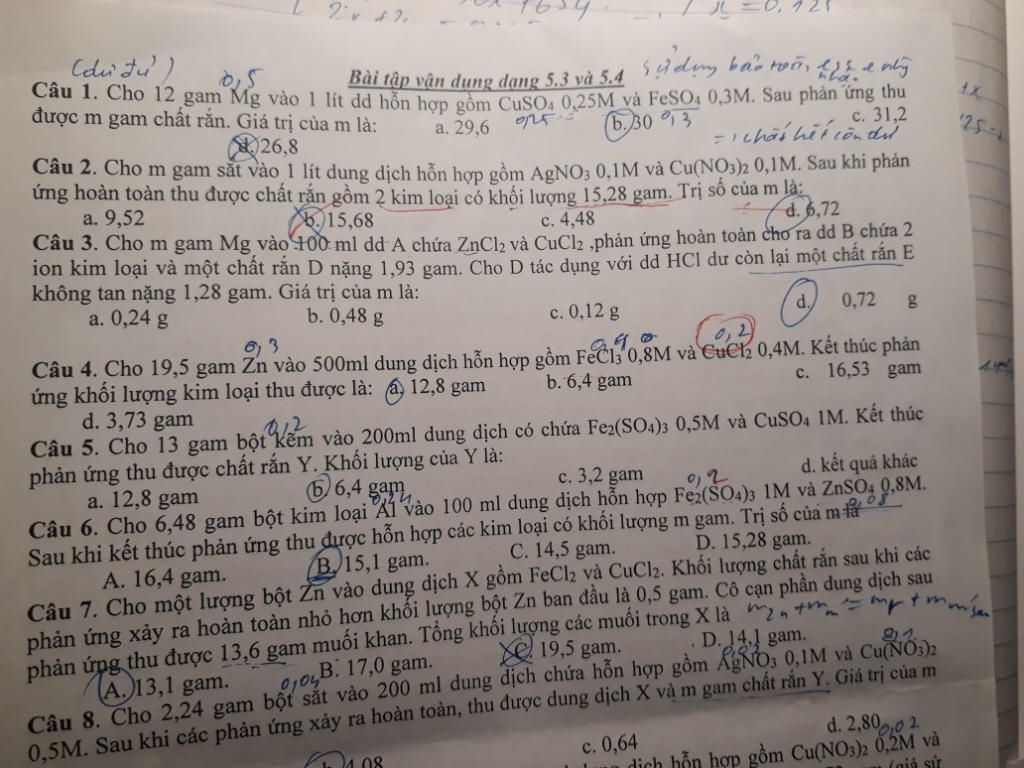 x = 0,125
(dư đủ) 0,5
Bài tập vận dụng dạng 5.3 và 5.4
sử dụng bảo toàn e
Câu 1. Cho 12 gam Mg vào 1 lít dd hỗn hợp gồm CuSO4 0,25M và FeSO4 0,3M. Sau phản ứng thu
được m gam chất rắn. Giá trị của m là: a. 29,6 0,25 b. 30 0,3 c. 31,2
d. 26,8
=> chất hết còn dư
Câu 2. Cho m gam sắt vào 1 lít dung dịch hỗn hợp gồm AgNO3 0,1M và Cu(NO3)2 0,1M. Sau khi phản
ứng hoàn toàn thu được chất rắn gồm 2 kim loại có khối lượng 15,28 gam. Trị số của m là:
a. 9,52 b. 15,68 c. 4,48 d. 6,72
Câu 3. Cho m gam Mg vào 100 ml dd A chứa ZnCl2 và CuCl2 ,phản ứng hoàn toàn cho ra dd B chứa 2
ion kim loại và một chất rắn D nặng 1,93 gam. Cho D tác dụng với dd HCl dư còn lại một chất rắn E
không tan nặng 1,28 gam. Giá trị của m là:
a. 0,24 g b. 0,48 g c. 0,12 g d. 0,72 g
0,3 0,4 0,2
Câu 4. Cho 19,5 gam Zn vào 500ml dung dịch hỗn hợp gồm FeCl3 0,8M và CuCl2 0,4M. Kết thúc phản
ứng khối lượng kim loại thu được là: a. 12,8 gam b. 6,4 gam c. 16,53 gam
d. 3,73 gam
0,2
Câu 5. Cho 13 gam bột kẽm vào 200ml dung dịch có chứa Fe2(SO4)3 0,5M và CuSO4 1M. Kết thúc
phản ứng thu được chất rắn Y. Khối lượng của Y là:
a. 12,8 gam b. 6,4 gam c. 3,2 gam d. kết quả khác
0,24 0,2
Câu 6. Cho 6,48 gam bột kim loại Al vào 100 ml dung dịch hỗn hợp Fe2(SO4)3 1M và ZnSO4 0,8M.
0,08
Sau khi kết thúc phản ứng thu được hỗn hợp các kim loại có khối lượng m gam. Trị số của m là
A. 16,4 gam. B. 15,1 gam. C. 14,5 gam. D. 15,28 gam.
Câu 7. Cho một lượng bột Zn vào dung dịch X gồm FeCl2 và CuCl2. Khối lượng chất rắn sau khi các
phản ứng xảy ra hoàn toàn nhỏ hơn khối lượng bột Zn ban đầu là 0,5 gam. Cô cạn phần dung dịch sau
phản ứng thu được 13,6 gam muối khan. Tổng khối lượng các muối trong X là
A. 13,1 gam. B. 17,0 gam. C. 19,5 gam. D. 14,1 gam.
0,04 0,02 0,1
Câu 8. Cho 2,24 gam bột sắt vào 200 ml dung dịch chứa hỗn hợp gồm AgNO3 0,1M và Cu(NO3)2
0,5M. Sau khi các phản ứng xảy ra hoàn toàn, thu được dung dịch X và m gam chất rắn Y. Giá trị của m
4,08 c. 0,64 d. 2,80
0,02
dịch hỗn hợp gồm Cu(NO3)2 0,2M và
(giả sử